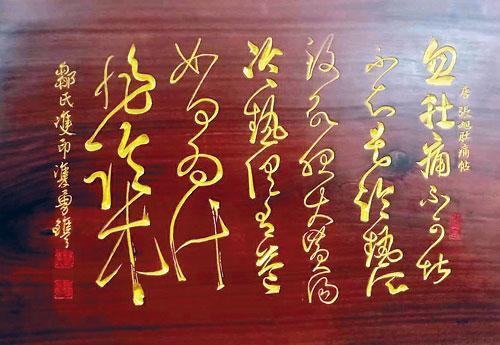 唐 張旭肚痛帖
忽肚痛不可堪
不知是冷熱所
致欲服大黃湯
冷熱俱有益
如何為計
非臨床
氏雙印 勇鐫